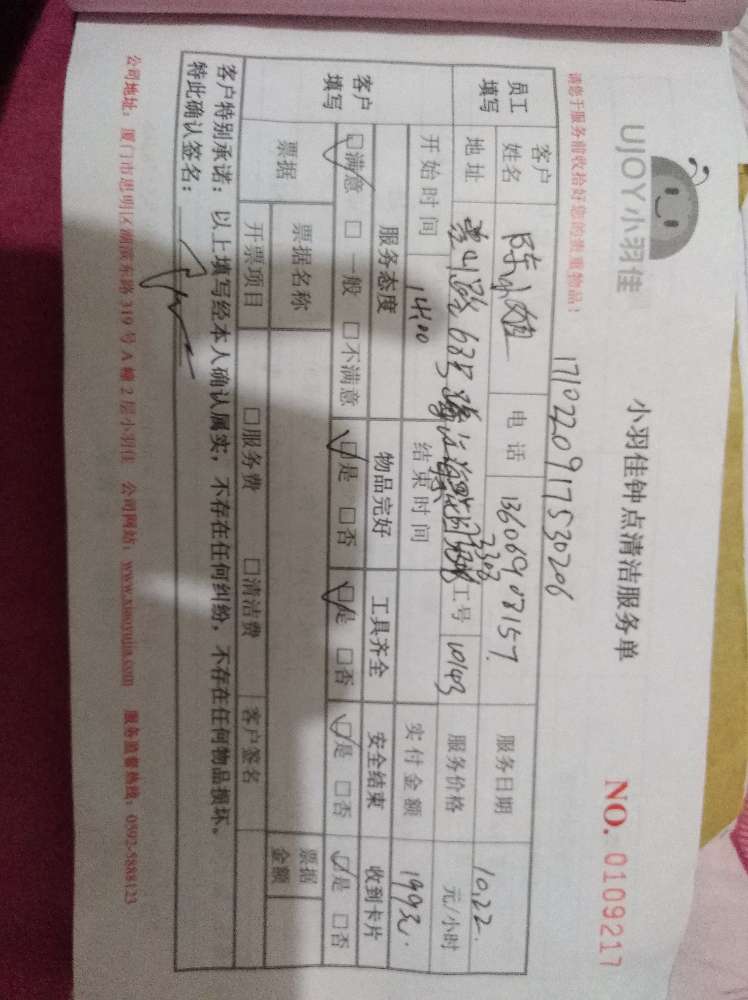 UJOY小羽佳
小羽佳钟点清洁服务单
NO. 0109217
请您于服务前收拾好您的贵重物品！
1710220917530206
员工填写 客户姓名 陈小姐 电话 13606908157 服务日期 10.22.
地址 63号 3303 工号 10143 服务价格 元/小时
开始时间 14:00 结束时间 实付金额 199元.
客户填写 服务态度 物品完好 工具齐全 安全结束 收到卡片
☑满意 □一般 □不满意 ☑是 □否 ☑是 □否 ☑是 □否 ☑是 □否
票据 票据名称 票据金额
开票项目 □服务费 □清洁费 客户签名
客户特别承诺：以上填写经本人确认属实，不存在任何纠纷，不存在任何物品损坏。
特此确认签名：
公司地址：厦门市思明区湖滨东路319号A幢2层小羽佳 公司网站：www.xiaoyujia.com 服务监督热线：0592-5888123